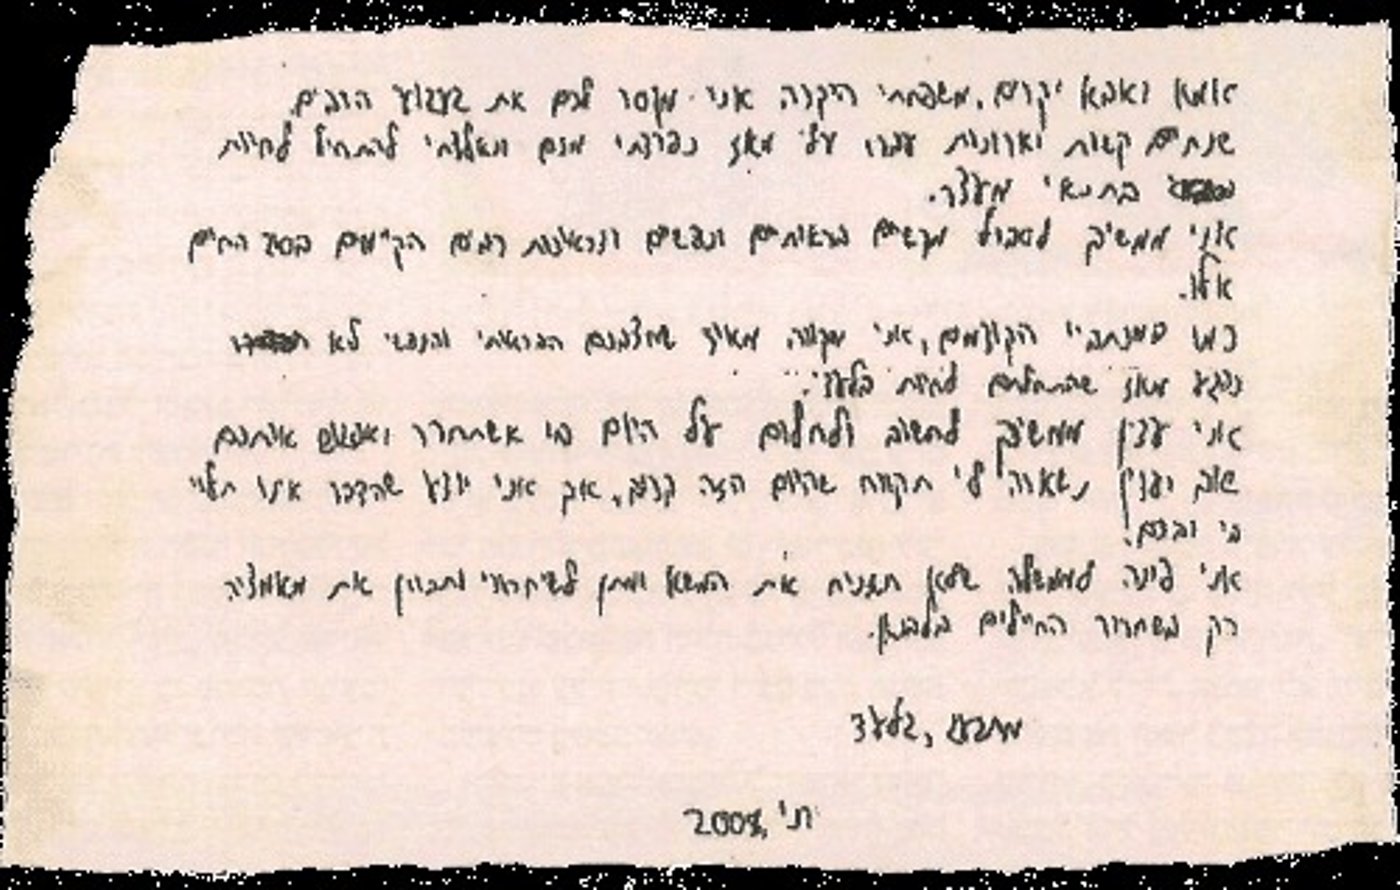 אמא ואבא יקרים, משפחתי היקרה אני מוסר לכם את געגועי הרבים.
שנתיים קשות וארוכות עברו עלי מאז נפרדתי מכם ונאלצתי להתחיל לחיות
בתנאי מעצר.
אני ממשיך לסבול מקשיים בריאותיים ונפשיים ודכאונות רבים הקיימים בסוג החיים
אלו.
כמו במכתביי הקודמים, אני מקווה מאוד שמצבכם הבריאותי והנפשי לא
נפגע מאז שהתחלתם לחיות בלעדי.
אני עדיין ממשיך לחשוב ולחלום על היום בו אשתחרר ואפגוש אתכם
שוב ועדיין נשארה לי תקווה שהיום הזה קרוב, אך אני יודע שהדבר אינו תלוי
בי ובכם.
אני פונה לממשלה שלא תזניח את המשא ומתן לשיחרורי ותכוון את מאמציה
רק בשחרור החיילים בלבנון.
שלכם, גלעד
יוני, 2008